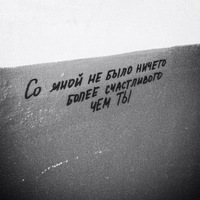 Со мной не было ничего
более счастливого
чем ты